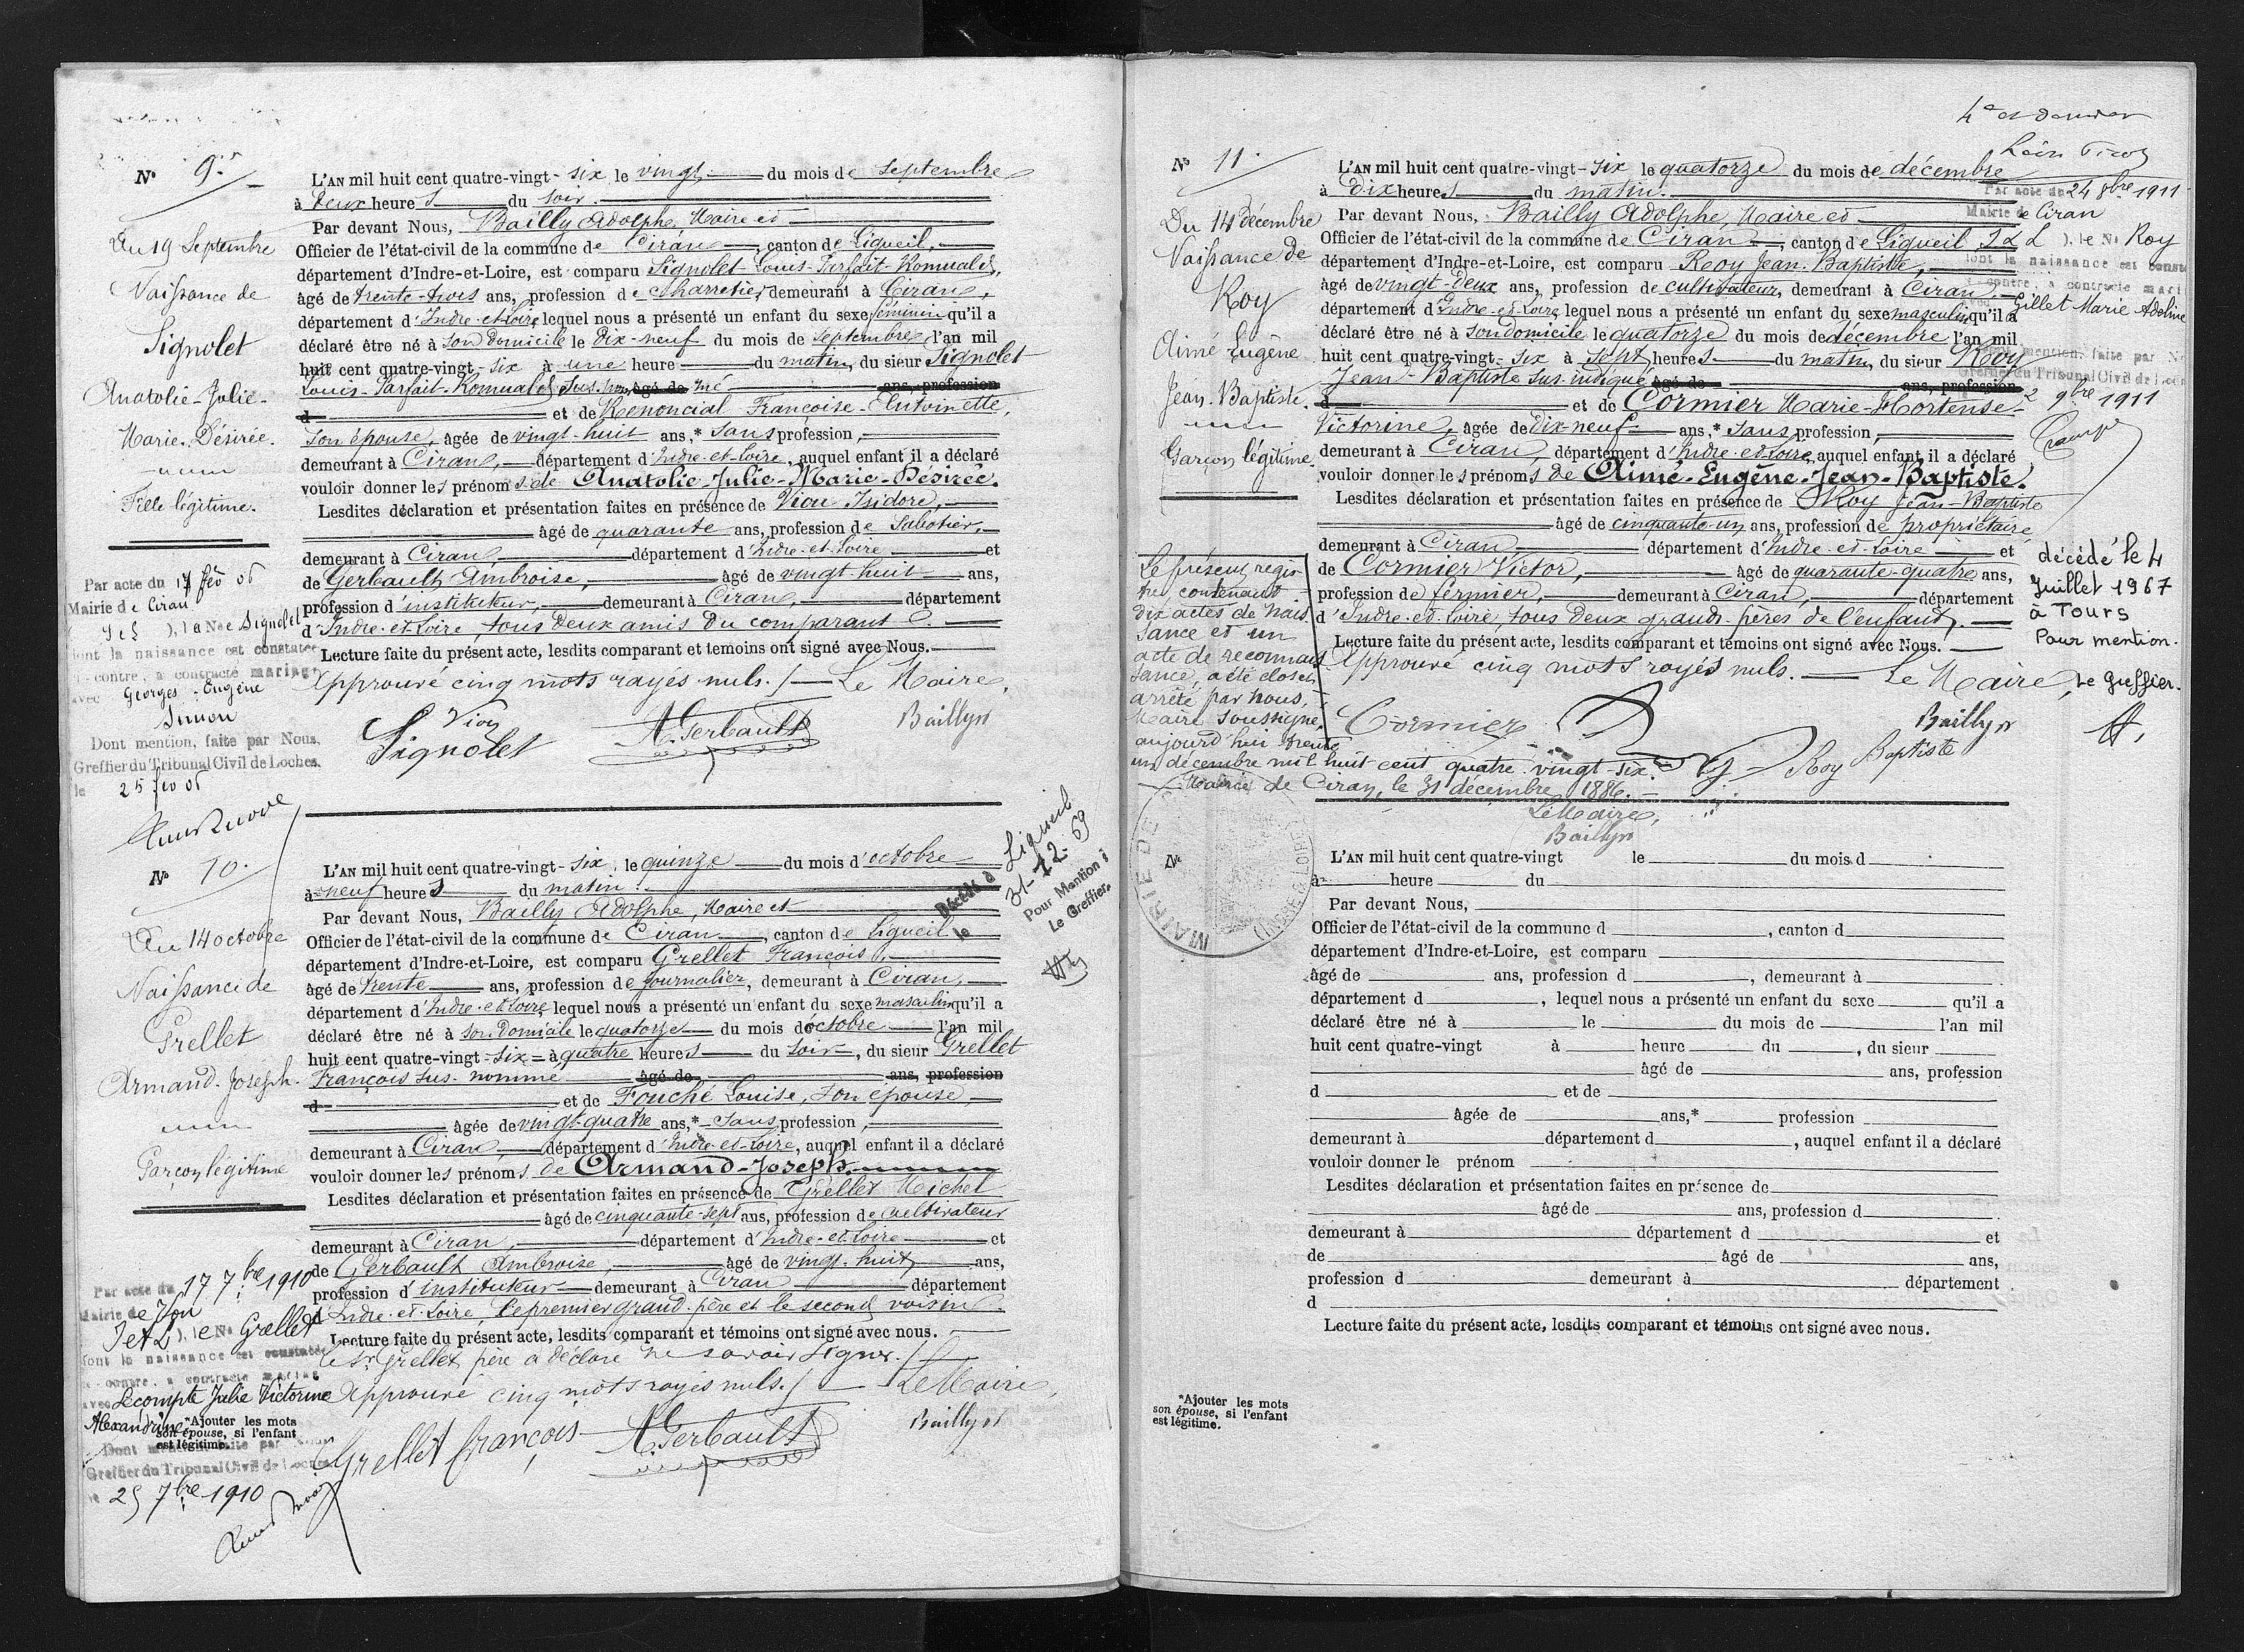 N° 9.
Du 19 Septembre
Naissance de
Signolet
Anatolie-Julie-
Marie-Désirée.
Fille légitime.
Par acte du 17 fév 06
Mairie de Ciran
J et L ), la Nee Signolet
dont la naissance est constatée
ci-contre, a contracté mariage
avec Georges-Eugène
Simon
Dont mention, faite par Nous,
Greffier du Tribunal Civil de Loches,
le 25 fév 06
L'AN mil huit cent quatre-vingt-six le vingt du mois de septembre
à deux heures du soir.
Par devant Nous, Bailly Adolphe, Maire et
Officier de l'état-civil de la commune de Ciran, canton de Ligueil,
département d'Indre-et-Loire, est comparu Signolet Louis-Parfait-Romuald,
âgé de trente-trois ans, profession de charretier, demeurant à Ciran,
département d'Indre-et-Loire, lequel nous a présenté un enfant du sexe féminin qu'il a
déclaré être né à son domicile le dix-neuf du mois de septembre l'an mil
huit cent quatre-vingt-six à une heure du matin, du sieur Signolet
Louis-Parfait-Romuald sus-nommé âgé de ans, profession
d et de Renoncial Françoise-Antoinette,
son épouse, âgée de vingt-huit ans,* sans profession,
demeurant à Ciran, département d'Indre-et-Loire, auquel enfant il a déclaré
vouloir donner les prénoms de Anatolie-Julie-Marie-Désirée.
Lesdites déclaration et présentation faites en présence de Viou Isidore,
âgé de quarante ans, profession de sabotier,
demeurant à Ciran, département d'Indre-et-Loire et
de Gerbault Ambroise, âgé de vingt-huit ans,
profession d'instituteur, demeurant à Ciran, département
d'Indre-et-Loire, tous deux amis du comparant
Lecture faite du présent acte, lesdits comparant et temoins ont signé avec Nous.
Approuvé cinq mots rayés nuls. Le Maire,
Viou
Signolet A. Gerbault Bailly
N° 10.
Du 14 octobre
Naissance de
Grellet
Armand-Joseph.
Garçon légitime
Par acte du 17 7bre 1910
Mairie de
J et L ), le N. Grellet
dont la naissance est constatée
ci-contre, a contracté mariage
avec Lecompte Julie Victorine
Alexandrine
Dont mention, faite par Nous
Greffier du Tribunal Civil de Loches
25 7bre 1910
*Ajouter les mots
son épouse, si l'enfant
est légitime.
L'AN mil huit cent quatre-vingt-six, le quinze du mois d'octobre
à neuf heures du matin.
Par devant Nous, Bailly Adolphe, Maire et
Officier de l'état-civil de la commune de Ciran, canton de Ligueil
département d'Indre-et-Loire, est comparu Grellet François,
âgé de trente ans, profession de journalier, demeurant à Ciran,
département d'Indre-et-Loire, lequel nous a présenté un enfant du sexe masculin qu'il a
déclaré être né à son domicile le quatorze du mois d'octobre l'an mil
huit cent quatre-vingt-six à quatre heures du soir, du sieur Grellet
François sus-nommé âgé de ans, profession
d et de Fouché Louise, son épouse,
âgée de vingt-quatre ans,* sans profession,
demeurant à Ciran, département d'Indre-et-Loire, auquel enfant il a déclaré
vouloir donner les prénoms de Armand-Joseph.
Lesdites déclaration et présentation faites en présence de Grellet Michel
âgé de cinquante-sept ans, profession de cultivateur
demeurant à Ciran, département d'Indre-et-Loire et
de Gerbault Ambroise, âgé de vingt-huit ans,
profession d'instituteur demeurant à Ciran département
d'Indre-et-Loire, le premier grand-père et le second voisin.
Lecture faite du présent acte, lesdits comparant et témoins ont signé avec nous.
le Sr Grellet père a déclaré ne savoir signer.
Approuvé cinq mots rayés nuls. Le Maire,
Grellet françois A. Gerbault Bailly
Décédé à Ligueil
le 31-12-69
Pour Mention
Le Greffier.
4e et dernier
N° 11.
Du 14 décembre
Naissance de
Roy
Aimé Eugène
Jean-Baptiste.
Garçon légitime.
Le présent registre
contenant
dix actes de nais
sance et un
acte de reconnais
sance, a été clos et
arrêté par nous,
Maire soussigné,
aujourd'hui trente
un décembre mil huit cent quatre-vingt-six.
Mairie de Ciran, le 31 décembre 1886.
Le Maire,
Bailly
L'AN mil huit cent quatre-vingt-six le quatorze du mois de décembre
à dix heures du matin.
Par devant Nous, Bailly Adolphe, Maire et
Officier de l'état-civil de la commune de Ciran, canton de Ligueil
département d'Indre-et-Loire, est comparu Roy Jean-Baptiste,
âgé de vingt-deux ans, profession de cultivateur, demeurant à Ciran,
département d'Indre-et-Loire, lequel nous a présenté un enfant du sexe masculin qu'il a
déclaré être né à son domicile le quatorze du mois de décembre l'an mil
huit cent quatre-vingt-six à sept heures du matin, du sieur Roy
Jean-Baptiste sus-indiqué âgé de ans, profession
d et de Cormier Marie-Hortense-
Victorine, âgée de dix-neuf ans,* sans profession,
demeurant à Ciran, département d'Indre-et-Loire, auquel enfant il a déclaré
vouloir donner les prénoms de Aimé-Eugène-Jean-Baptiste.
Lesdites déclaration et présentation faites en présence de Roy Jean-Baptiste
âgé de cinquante-un ans, profession de propriétaire,
demeurant à Ciran, département d'Indre-et-Loire et
de Cormier Victor, âgé de quarante-quatre ans,
profession de fermier, demeurant à Ciran, département
d'Indre-et-Loire, tous deux grands-pères de l'enfant.
Lecture faite du présent acte, lesdits comparant et témoins ont signé avec Nous.
Approuvé cinq mots rayés nuls. Le Maire,
Cormier Roy Baptiste Bailly
Par acte du 24 8bre 1911
Mairie de Ciran
I & L ), le N. Roy
dont la naissance est constatée
ci-contre, a contracté mariage
Gillet Marie Adeline
mention, faite par
Greffier du Tribunal Civil de Loches
2 9bre 1911
décédé le 4
Juillet 1967
à Tours
Pour mention.
Le Greffier.
MAIRIE DE
(INDRE & LOIRE)
N°
L'AN mil huit cent quatre-vingt le du mois d
à heure du
Par devant Nous,
Officier de l'état-civil de la commune d , canton d
département d'Indre-et-Loire, est comparu
âgé de ans, profession d , demeurant à
département d , lequel nous a présenté un enfant du sexe qu'il a
déclaré être né à le du mois de l'an mil
huit cent quatre-vingt à heure du , du sieur
âgé de ans, profession
d et de
âgée de ans,* profession
demeurant à département d , auquel enfant il a déclaré
vouloir donner le prénom
Lesdites déclaration et présentation faites en présence de
âgé de ans, profession d
demeurant à département d et
de âgé de ans,
profession d demeurant à département
d
Lecture faite du présent acte, lesdits comparant et témoins ont signé avec nous.
*Ajouter les mots
son épouse, si l'enfant
est légitime.